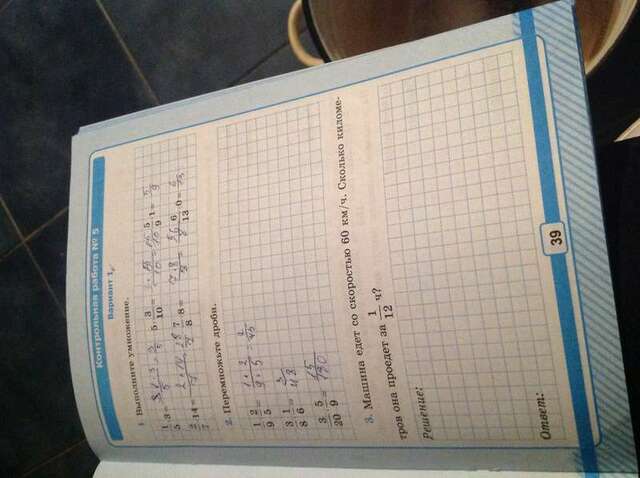 Контрольная работа № 5
Вариант 1
1. Выполните умножение.
1/5 · 3 = 3/5 5 · 3/10 = 15/10 5/9 · 1 = 5/9
· 14 = 2 · 14 7/8 · 8 = 7 · 8 6/13 · 0 =
2. Перемножьте дроби.
1/9 · 2/5 = 1 · 2/9 · 5 = 2/45
3/8 · 1/6 = 3/48
3/20 · 5/9 = 15/180
3. Машина едет со скоростью 60 км/ч. Сколько километров она проедет за 1/12 ч?
Решение:
Ответ:
39